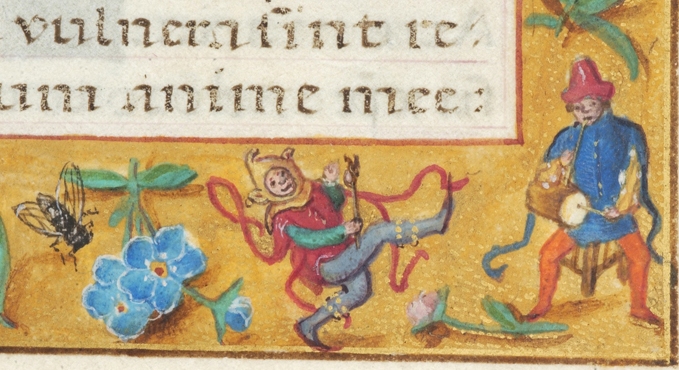 vulnera sint re:
um anime mee: